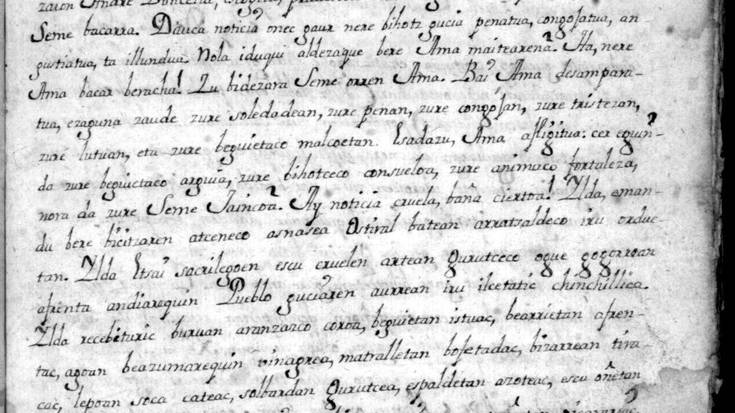 Seme bacarra. Dauca noticia onec gaur nere bihotz gucia penatua, congojatua, an
gustiatua, ta illundua. Nola iduqui alderaque bere Ama maitearena? Ha, nere
Ama bacar beracha! Zu bidezara Seme orren Ama. Bai Ama desampara-
tua, ezaguna zaude zure soledadean, zure penan, zure congojan, zure tristezan,
zure lutuan, eta zure beguietaco malcoetan. Esadazu, Ama afligitua: cer eguin
da zure beguietaco arguia, zure bihotceco consueloa, zure animaco fortaleza,
nora da zure Seme Jaincoa? Ay noticia cruela, baña ciertoa! Ylda, eman-
du bere bicitzaren atceneco asnasea Ostiral batean arratsaldeco iru ordue-
tan. Ylda Etsai sacrilegoen escu cruelen artean gurutceco ogue gogorroan
afrenta andiarequin Pueblo guciaren aurrean iru ilcetatic chinchillica.
Ylda recebituric buruan aranzazco coroa, beguietan istuac, bearrietan afren-
tac, agoan beazumarequin vinagrea, matralletan bofetadac, bizarrean tira-
cac, lepoan soca cateac, solbardan gurutcea, espaldetan azoteac, escu oñetan